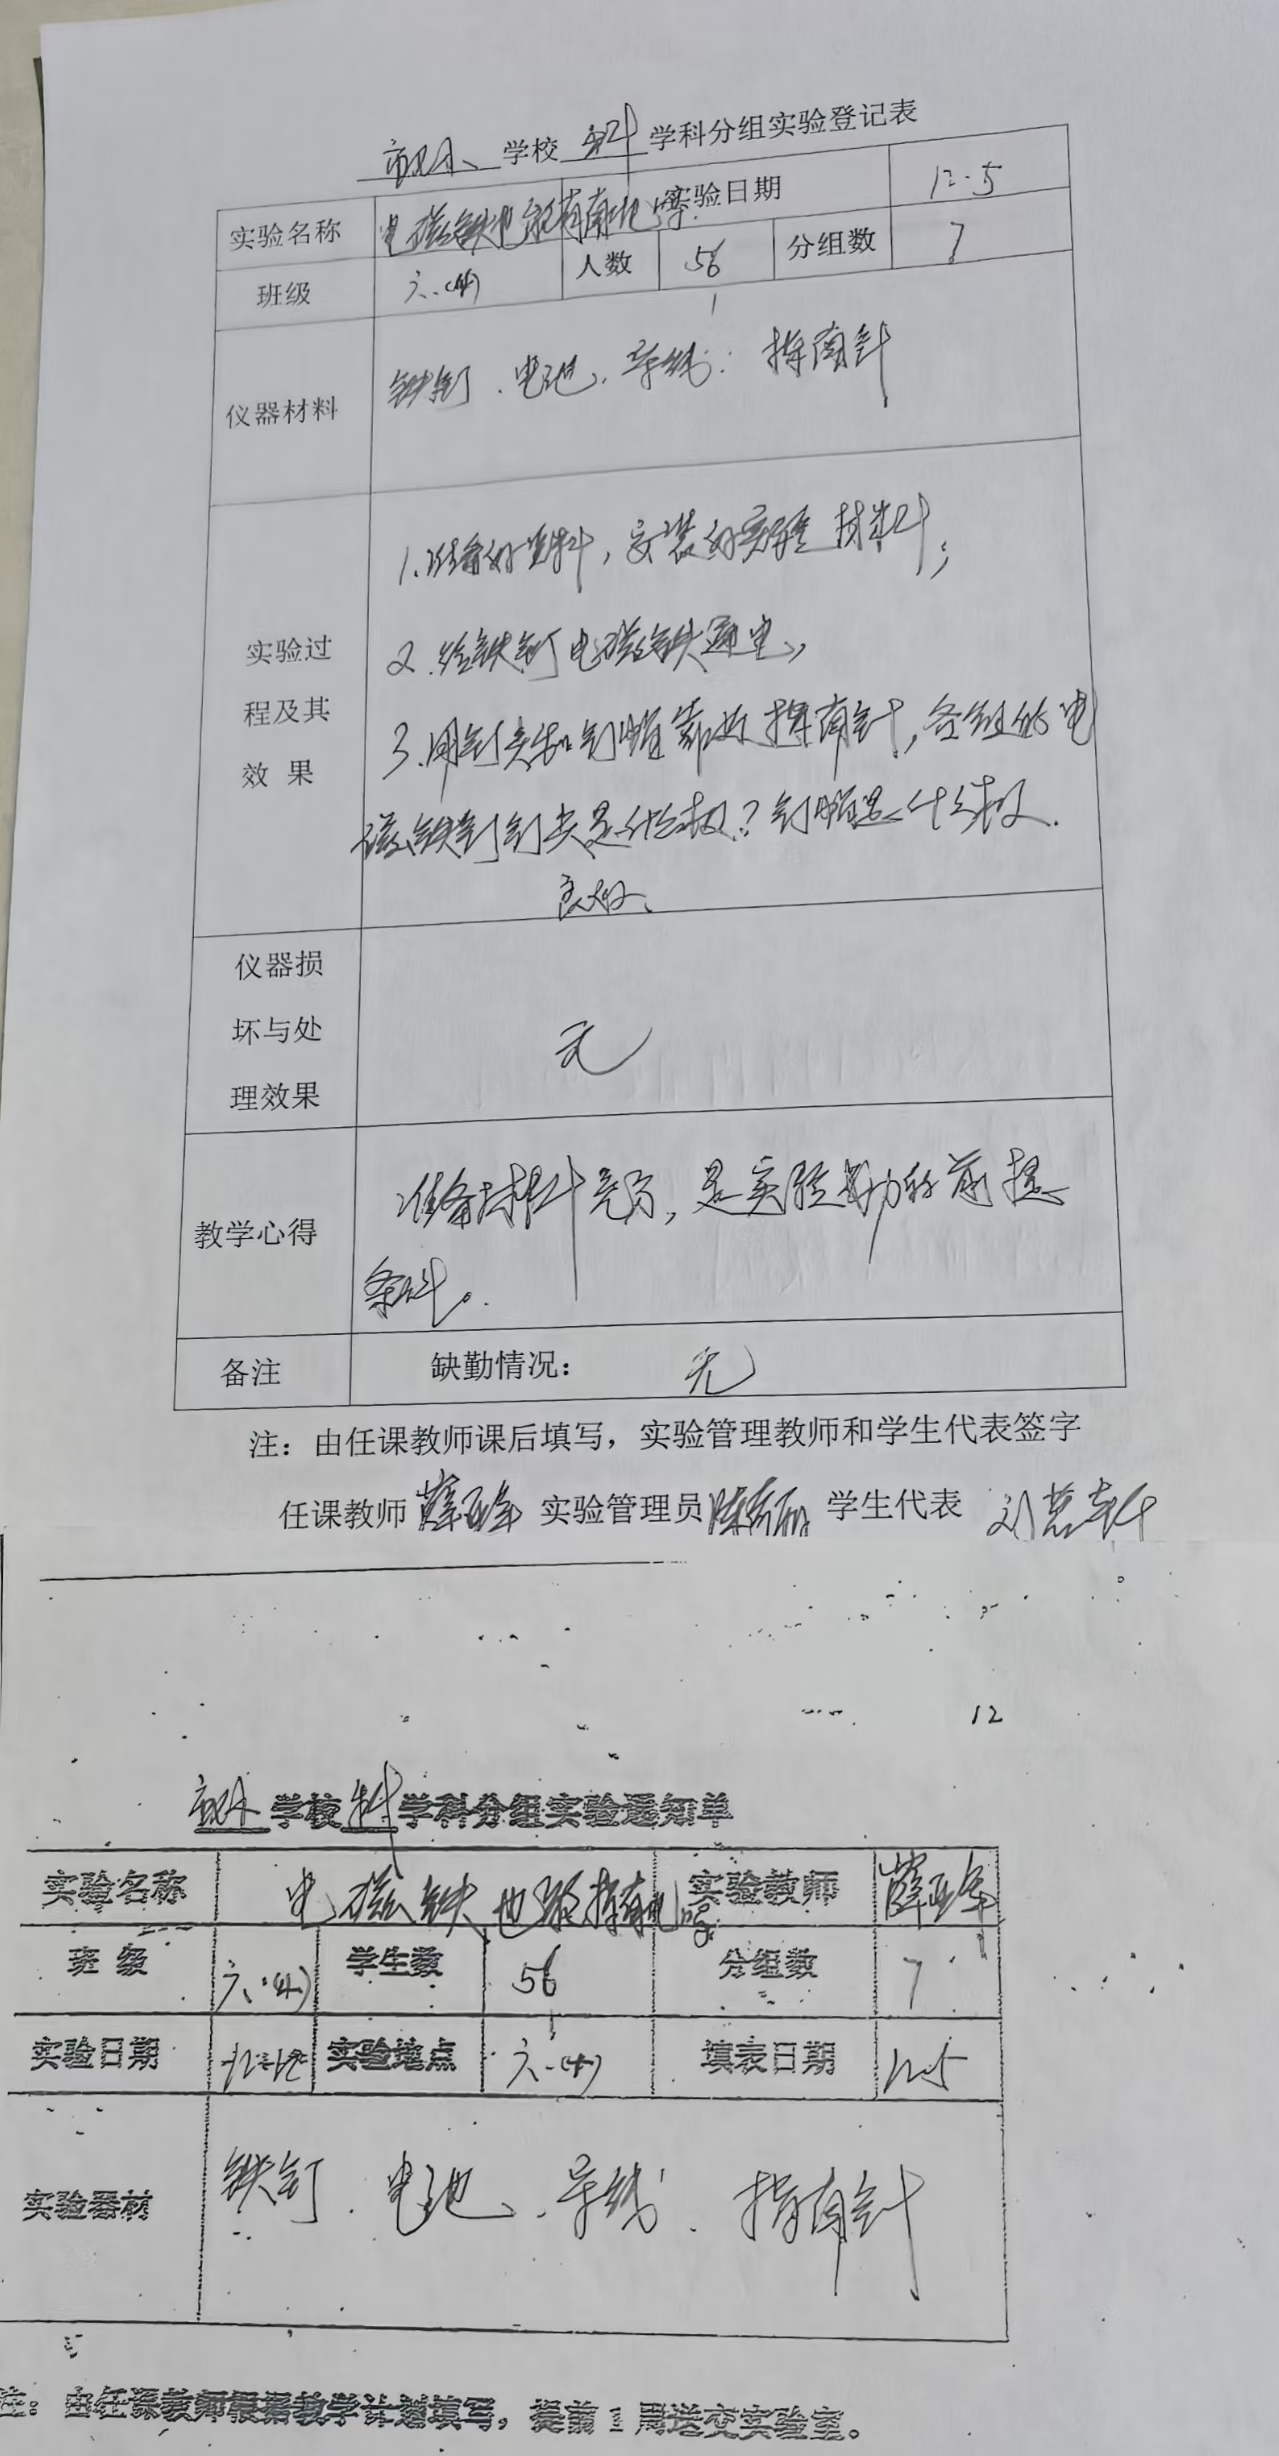 学校 学科分组实验登记表
实验名称 电磁铁也有南北 实验日期 12.5
班级 六.(4) 人数 56 分组数 7
仪器材料 铁钉、电池、导线、指南针
1.准备好资料，安装好实验材料；
2.给铁钉电磁铁通电，
实验过
程及其
效 果
3.用钉尖和钉帽靠近指南针，各组的电
磁铁钉钉尖是什么极？钉帽是什么极.
良好、
仪器损
坏与处
理效果
无
教学心得
准备材料充分，是实验成功的前提
条件。
备注 缺勤情况： 无
注：由任课教师课后填写，实验管理教师和学生代表签字
任课教师 薛亚军 实验管理员 学生代表
12
学校 科 学科分组实验通知单
实验名称 电磁铁也 实验教师 薛亚军
班 级 六.(4) 学生数 56 分组数 7
实验日期 实验地点 六.(4) 填表日期 12.5
实验器材 铁钉、电池、导线、指南针
注：由任课教师根据教学计划填写，提前1周送交实验室。